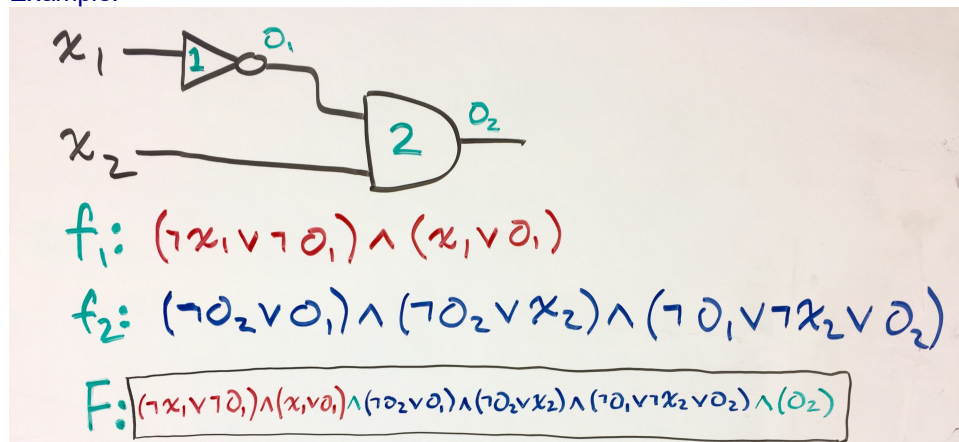 Example:
x₁ 1 O₁
x₂ 2 O₂
f₁: (¬x₁ ∨ ¬O₁) ∧ (x₁ ∨ O₁)
f₂: (¬O₂ ∨ O₁) ∧ (¬O₂ ∨ x₂) ∧ (¬O₁ ∨ ¬x₂ ∨ O₂)
F: (¬x₁ ∨ ¬O₁) ∧ (x₁ ∨ O₁) ∧ (¬O₂ ∨ O₁) ∧ (¬O₂ ∨ x₂) ∧ (¬O₁ ∨ ¬x₂ ∨ O₂) ∧ (O₂)